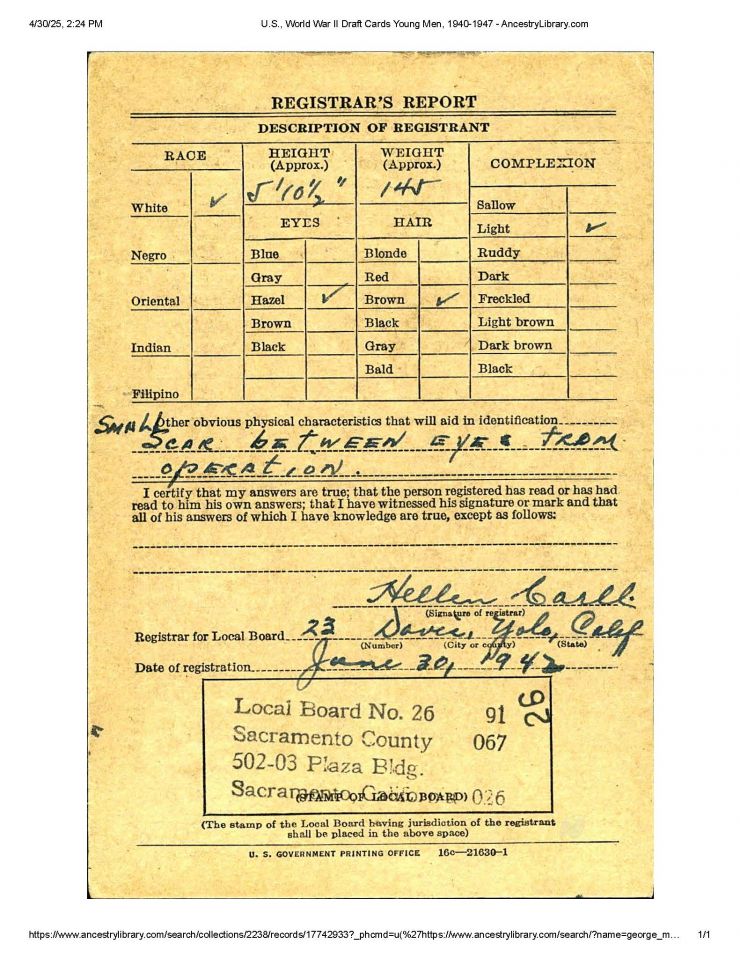 4/30/25, 2:24 PM U.S., World War II Draft Cards Young Men, 1940-1947 - AncestryLibrary.com
REGISTRAR'S REPORT
DESCRIPTION OF REGISTRANT
RACE HEIGHT (Approx.) WEIGHT (Approx.) COMPLEXION
5'10½" 145
White ✓ Sallow
EYES HAIR Light ✓
Negro Blue Blonde Ruddy
Gray Red Dark
Oriental Hazel ✓ Brown ✓ Freckled
Brown Black Light brown
Indian Black Gray Dark brown
Bald Black
Filipino
SMALL Other obvious physical characteristics that will aid in identification
SCAR BETWEEN EYES FROM
OPERATION.
I certify that my answers are true; that the person registered has read or has had
read to him his own answers; that I have witnessed his signature or mark and that
all of his answers of which I have knowledge are true, except as follows:
Hellen
(Signature of registrar)
Registrar for Local Board 23 Davis, Yolo, Calif
(Number) (City or county) (State)
Date of registration June 30, 1942
Local Board No. 26 91 26
Sacramento County 067
502-03 Plaza Bldg.
Sacramento, Calif. 026
(STAMP OF LOCAL BOARD)
(The stamp of the Local Board having jurisdiction of the registrant
shall be placed in the above space)
U. S. GOVERNMENT PRINTING OFFICE 16c—21630-1
https://www.ancestrylibrary.com/search/collections/2238/records/17742933?_phcmd=u(%27https://www.ancestrylibrary.com/search/?name=george_m… 1/1